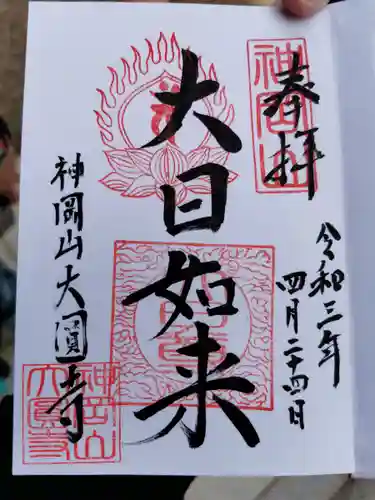 奉拝
令和三年
四月二十四日
大日如来
神岡山大圓寺
神岡山
神岡山
大圓寺